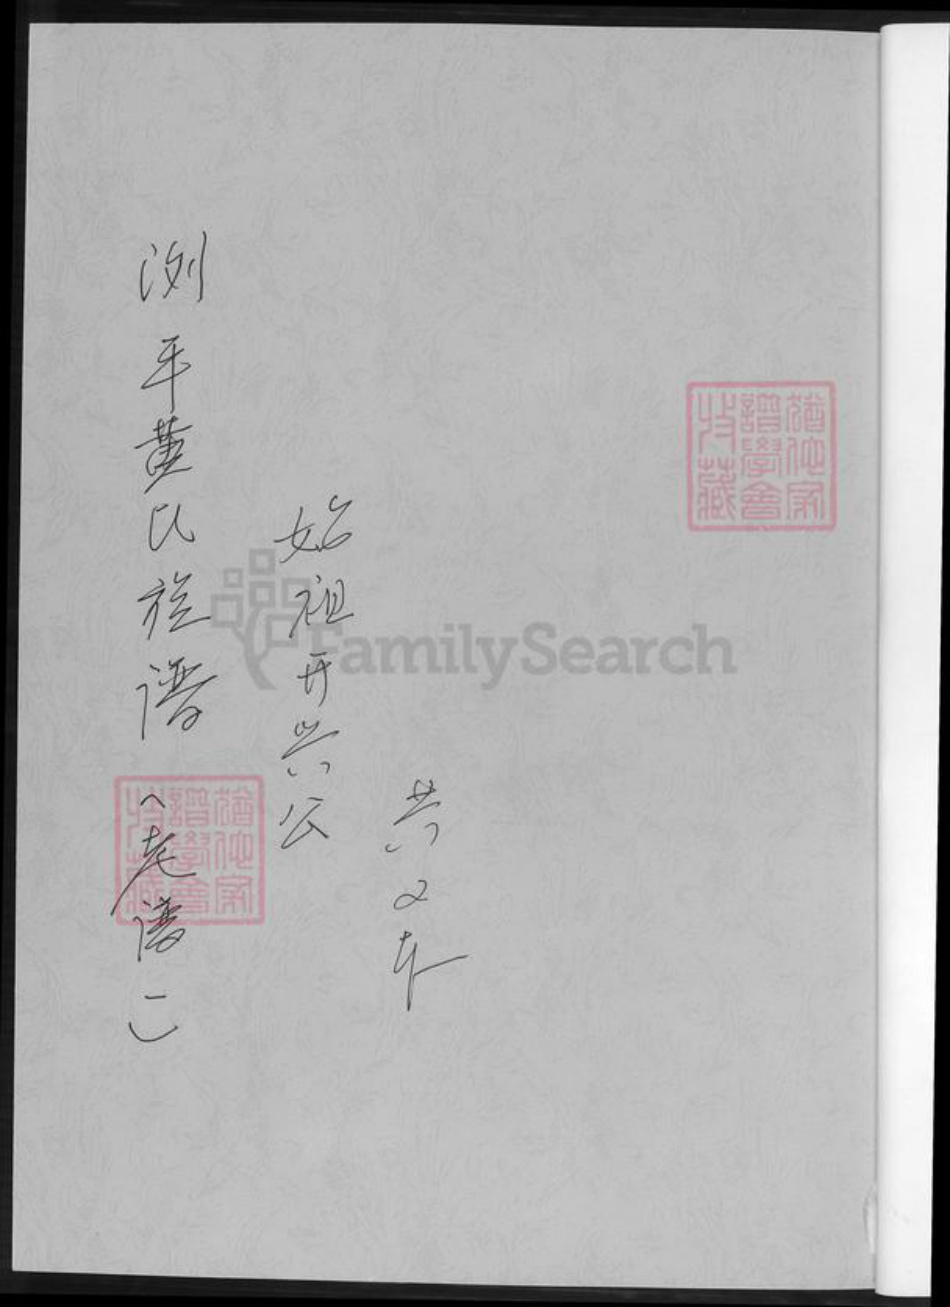 浏平黄氏族谱（老谱一）
始祖开兴公
共2本
猶他家譜學會收藏
猶他家譜學會收藏
FamilySearch